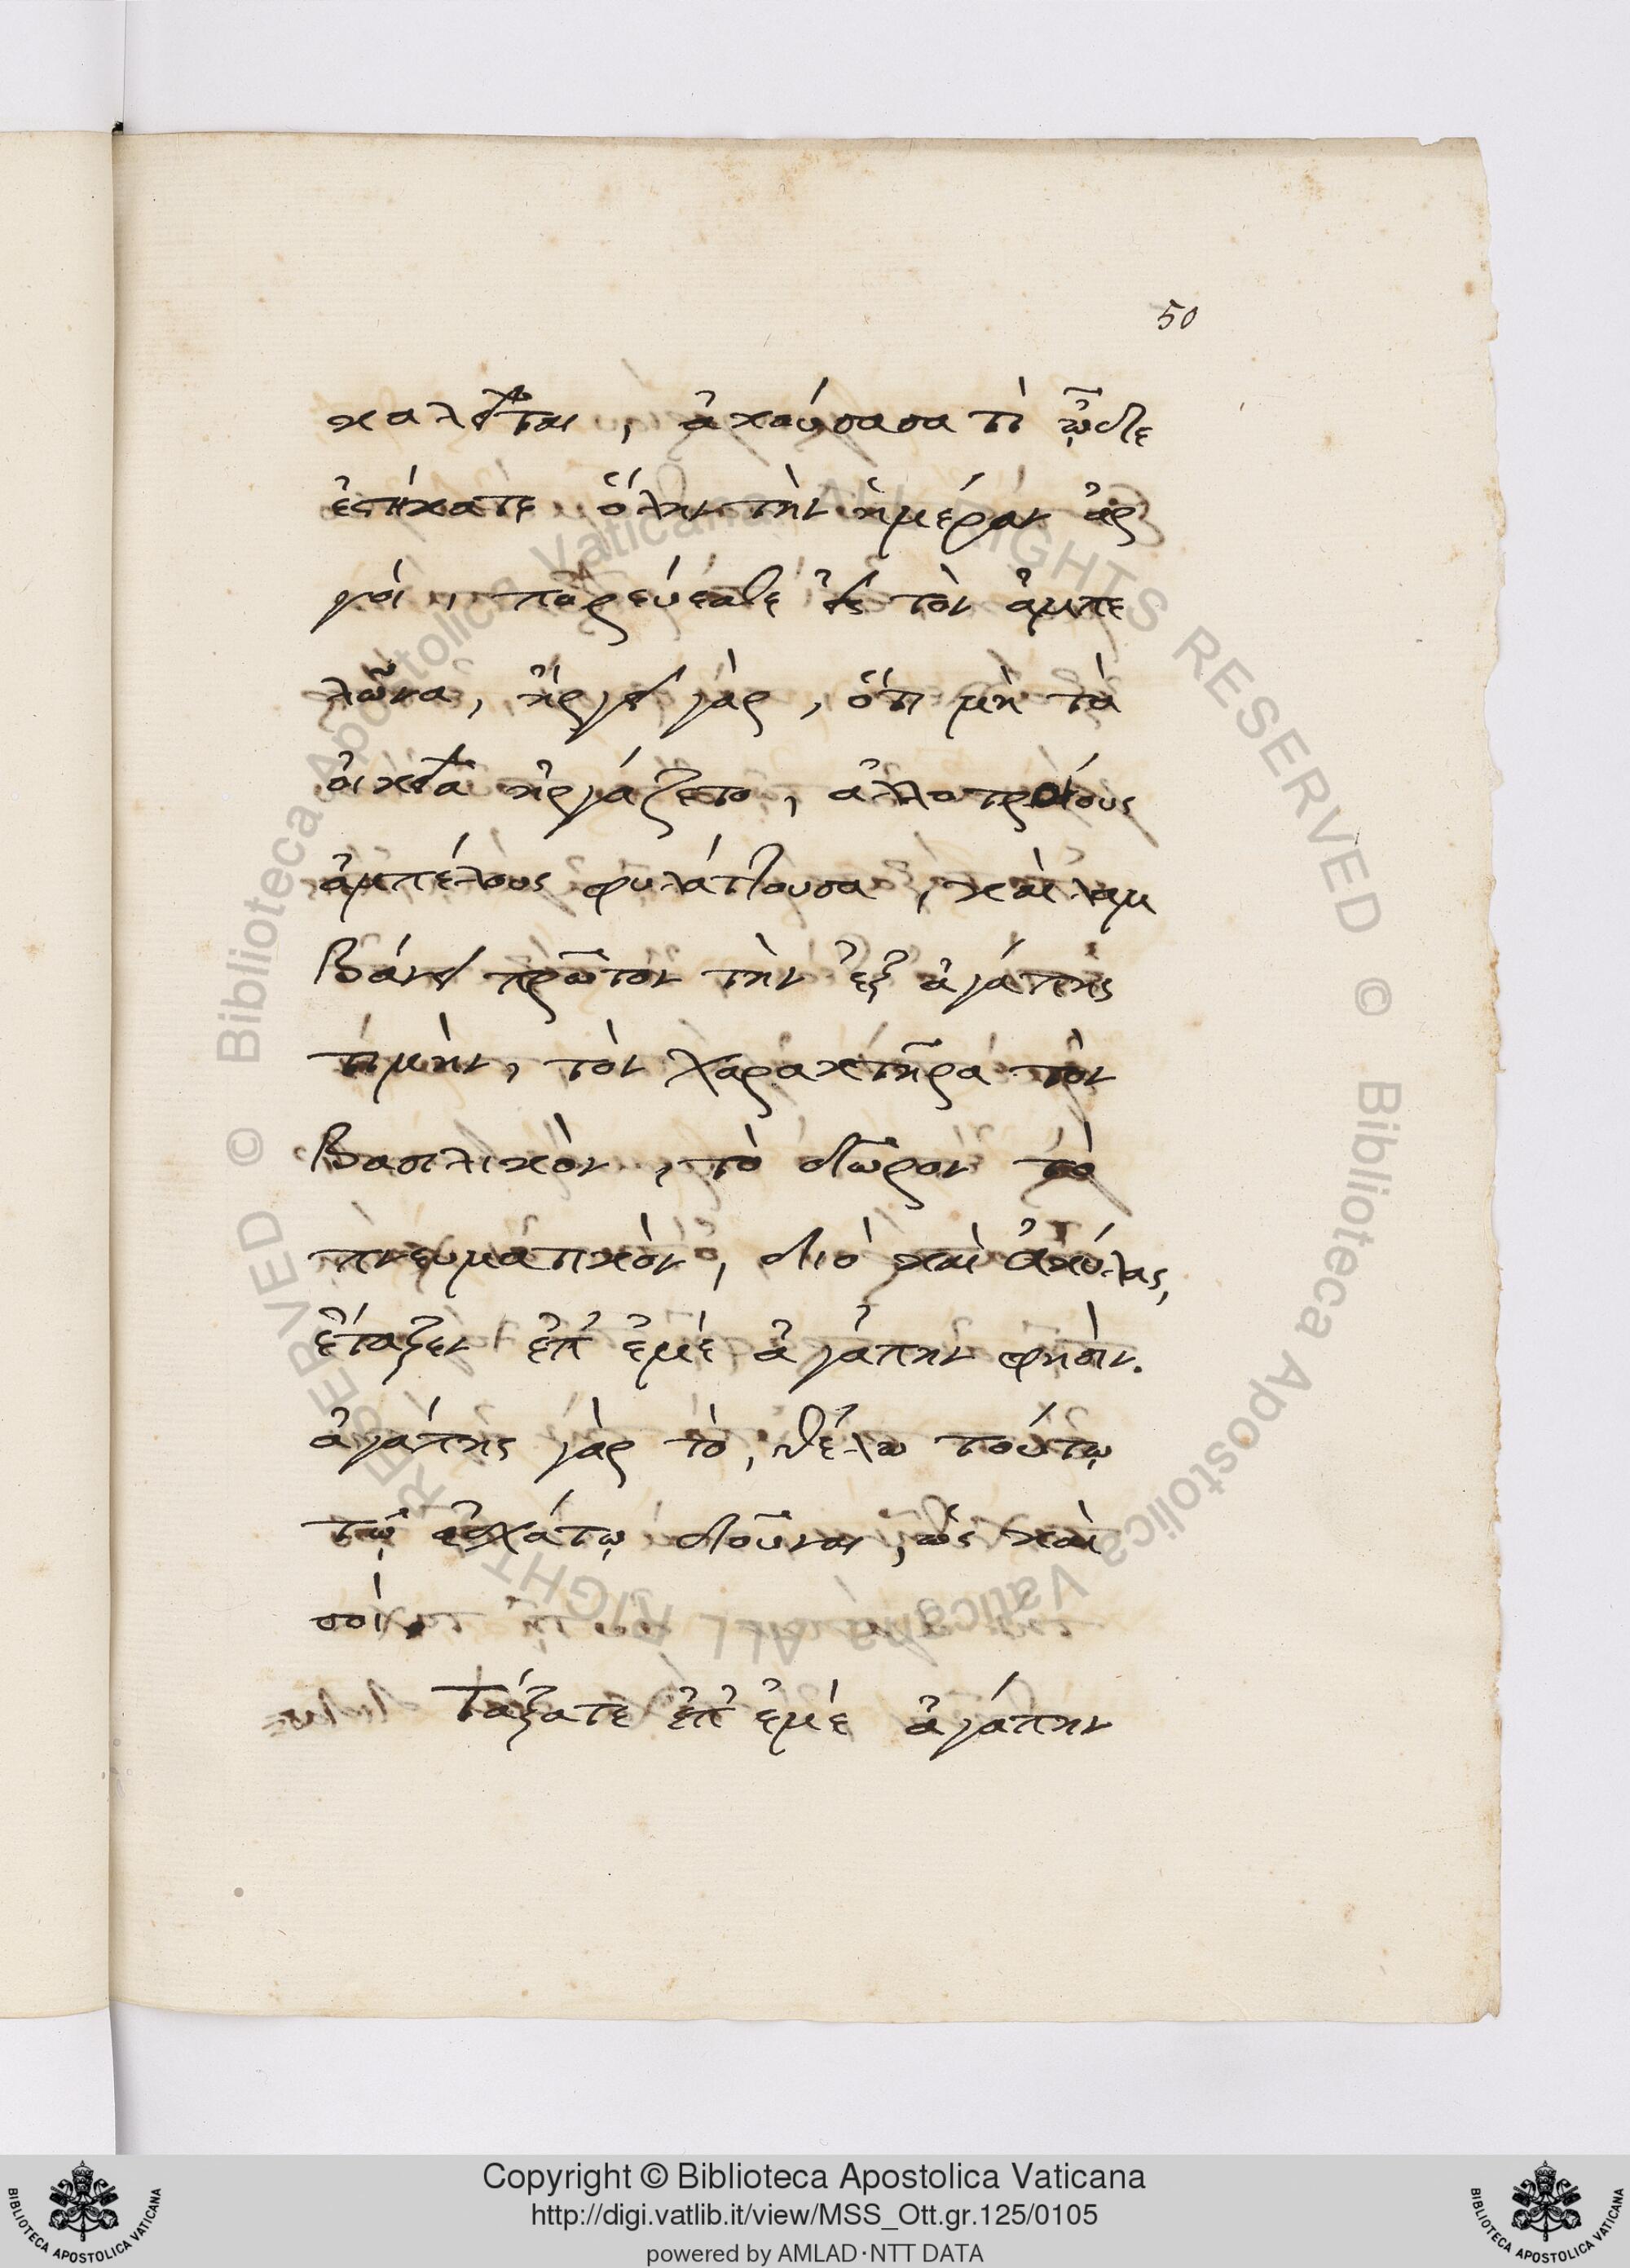 50
καλεῖται, ἀκούσασα τὶ ᾧδε
ἑστήκατε ὅλην τὴν ἡμέραν ἀρ
γοί, πορεύεσθε εἰς τὸν ἀμπε
λῶνα, ἤργει γὰρ, ὅτι μὴ τὰ
οἰκεῖα ἠργάζετο, ἀλλοτρίους
ἀμπέλους φυλάττουσα, καὶ λαμ
βάνει πρῶτον τὴν ἐξ ἀγάπης
τιμὴν, τὸν χαρακτῆρα τὸν
βασιλικὸν, τὸ δῶρον τὸ
πνευματικὸν, διὸ καὶ ἀκύλας,
ἔταξεν ἐπ' ἐμὲ ἀγάπην φησὶν.
ἀγάπης γὰρ τὸ, θέλω τούτῳ
τῷ ἐσχάτῳ δοῦναι, ὡς καὶ
σοί.
Τάξατε ἐπ' ἐμὲ ἀγάπην
© Biblioteca Apostolica Vaticana ALL RIGHTS RESERVED © Biblioteca Apostolica Vaticana ALL RIGHTS RESERVED
Copyright © Biblioteca Apostolica Vaticana
http://digi.vatlib.it/view/MSS_Ott.gr.125/0105
powered by AMLAD·NTT DATA
BIBLIOTECA APOSTOLICA VATICANA
BIBLIOTECA APOSTOLICA VATICANA